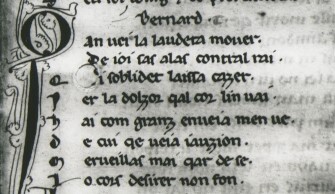 Bernard.
Qan uei la laudeta mouer.
De ioi sas alas contral rai.
Qi soblidet laissa cazer.
Per la dolzor qal cor lin uai
Hai com granz enueia men ue.
De cui qe ueia iauzion.
Merueillas mai qar de se.
Lo cors desirer non fon.